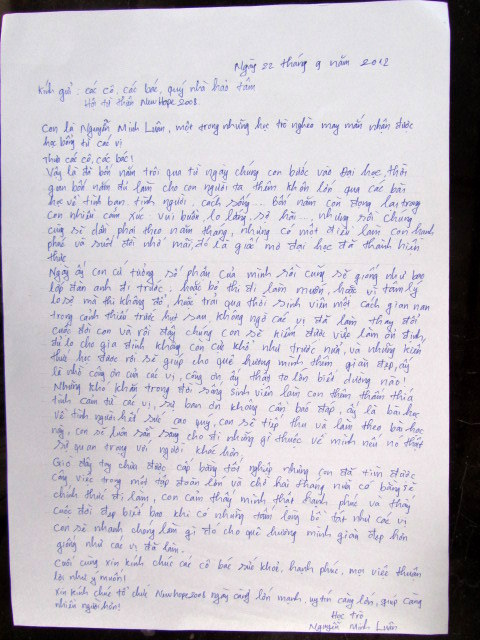 Ngày 22 tháng 9 năm 2012
Kính gửi: các cô, các bác, quý nhà hảo tâm
Hội từ thiện NewHope2008.
Con là Nguyễn Minh Luân, một trong những học trò nghèo may mắn nhận được
học bổng từ các vị
Thưa các cô, các bác!
Vậy là đã bốn năm trôi qua từ ngày chúng con bước vào Đại học, thời
gian bốn năm đủ làm cho con người ta thêm khôn lớn, qua các bài
học về tình bạn, tình người, cách sống... Bốn năm còn đọng lại trong
con nhiều cảm xúc: vui buồn, lo lắng, sợ hãi..., nhưng rồi chúng
cũng sẽ dần phai theo năm tháng, nhưng có một điều làm con hạnh
phúc và suốt đời nhớ mãi, đó là giấc mơ đại học đã thành hiện
thực
Ngày ấy con cứ tưởng số phận của mình rồi cũng sẽ giống như bao
lớp đàn anh đi trước: hoặc bỏ thi đi làm mướn, hoặc vì tâm lý
lo sợ mà thi không đỗ, hoặc trải qua thời sinh viên một cách gian nan
trong cảnh thiếu trước hụt sau không ngờ các vị đã làm thay đổi
cuộc đời con và rồi đây chúng con sẽ kiếm được việc làm ổn định,
đủ lo cho gia đình không còn cực khổ như trước nữa, và những kiến
thức học được rồi sẽ giúp cho quê hương mình thêm giàu đẹp, ấy
là nhờ công ơn của các vị, công ơn ấy thật to lớn biết dường nào!
Những khó khăn trong đời sống sinh viên làm con thêm thấm thía
tình cảm từ các vị, sự ban ơn không cần báo đáp, ấy là bài học
về tình người hết sức cao quý, con sẽ tiếp thu và làm theo bài học
này, con sẽ luôn sẵn sàng cho đi những gì thuộc về mình nếu nó thật
sự quan trọng với người khác hơn.
Giờ đây tuy chưa được cấp bằng tốt nghiệp nhưng con đã tìm được
công việc trong một tập đoàn lớn và chờ hai tháng nữa có bằng sẽ
chính thức đi làm, con cảm thấy mình thật hạnh phúc và thấy
cuộc đời đẹp biết bao khi có những tấm lòng bồ tát như các vị
Con sẽ nhanh chóng làm gì đó cho quê hương mình giàu đẹp hơn
giống như các vị đã làm.
Cuối cùng xin kính chúc các cô bác sức khoẻ, hạnh phúc, mọi việc thuận
lợi như ý muốn!
Xin kính chúc tổ chức NewHope2008 ngày càng lớn mạnh, uy tín càng lớn, giúp càng
nhiều người hơn!
Học trò
Nguyễn Minh Luân